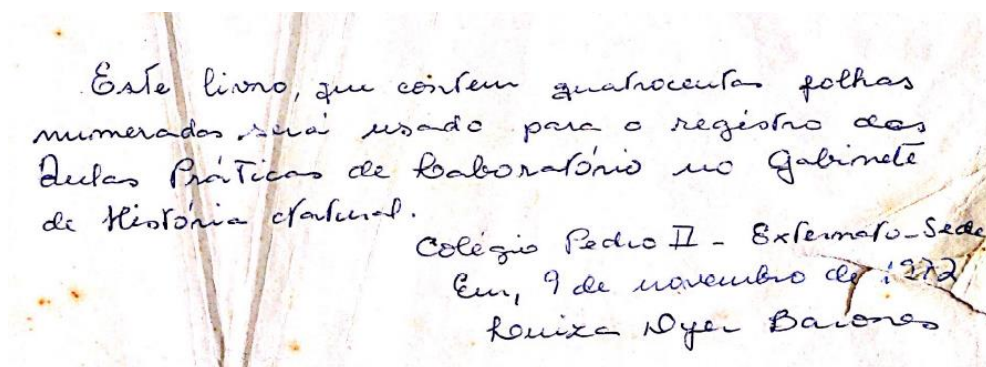 Este livro, que contem quatrocentas folhas
numeradas será usado para o registro das
Aulas Práticas de Laboratório no Gabinete
de História Natural.
Colégio Pedro II - Externato-Sede
Em, 9 de novembro de 1972
Luiza